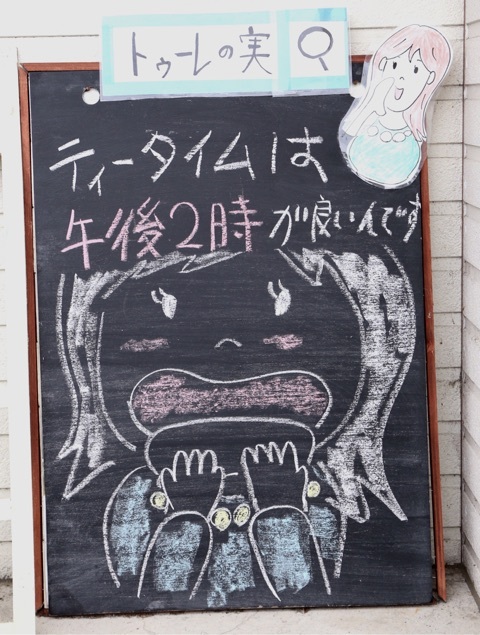 トゥーレの実
ティータイムは
午後2時が良いんです